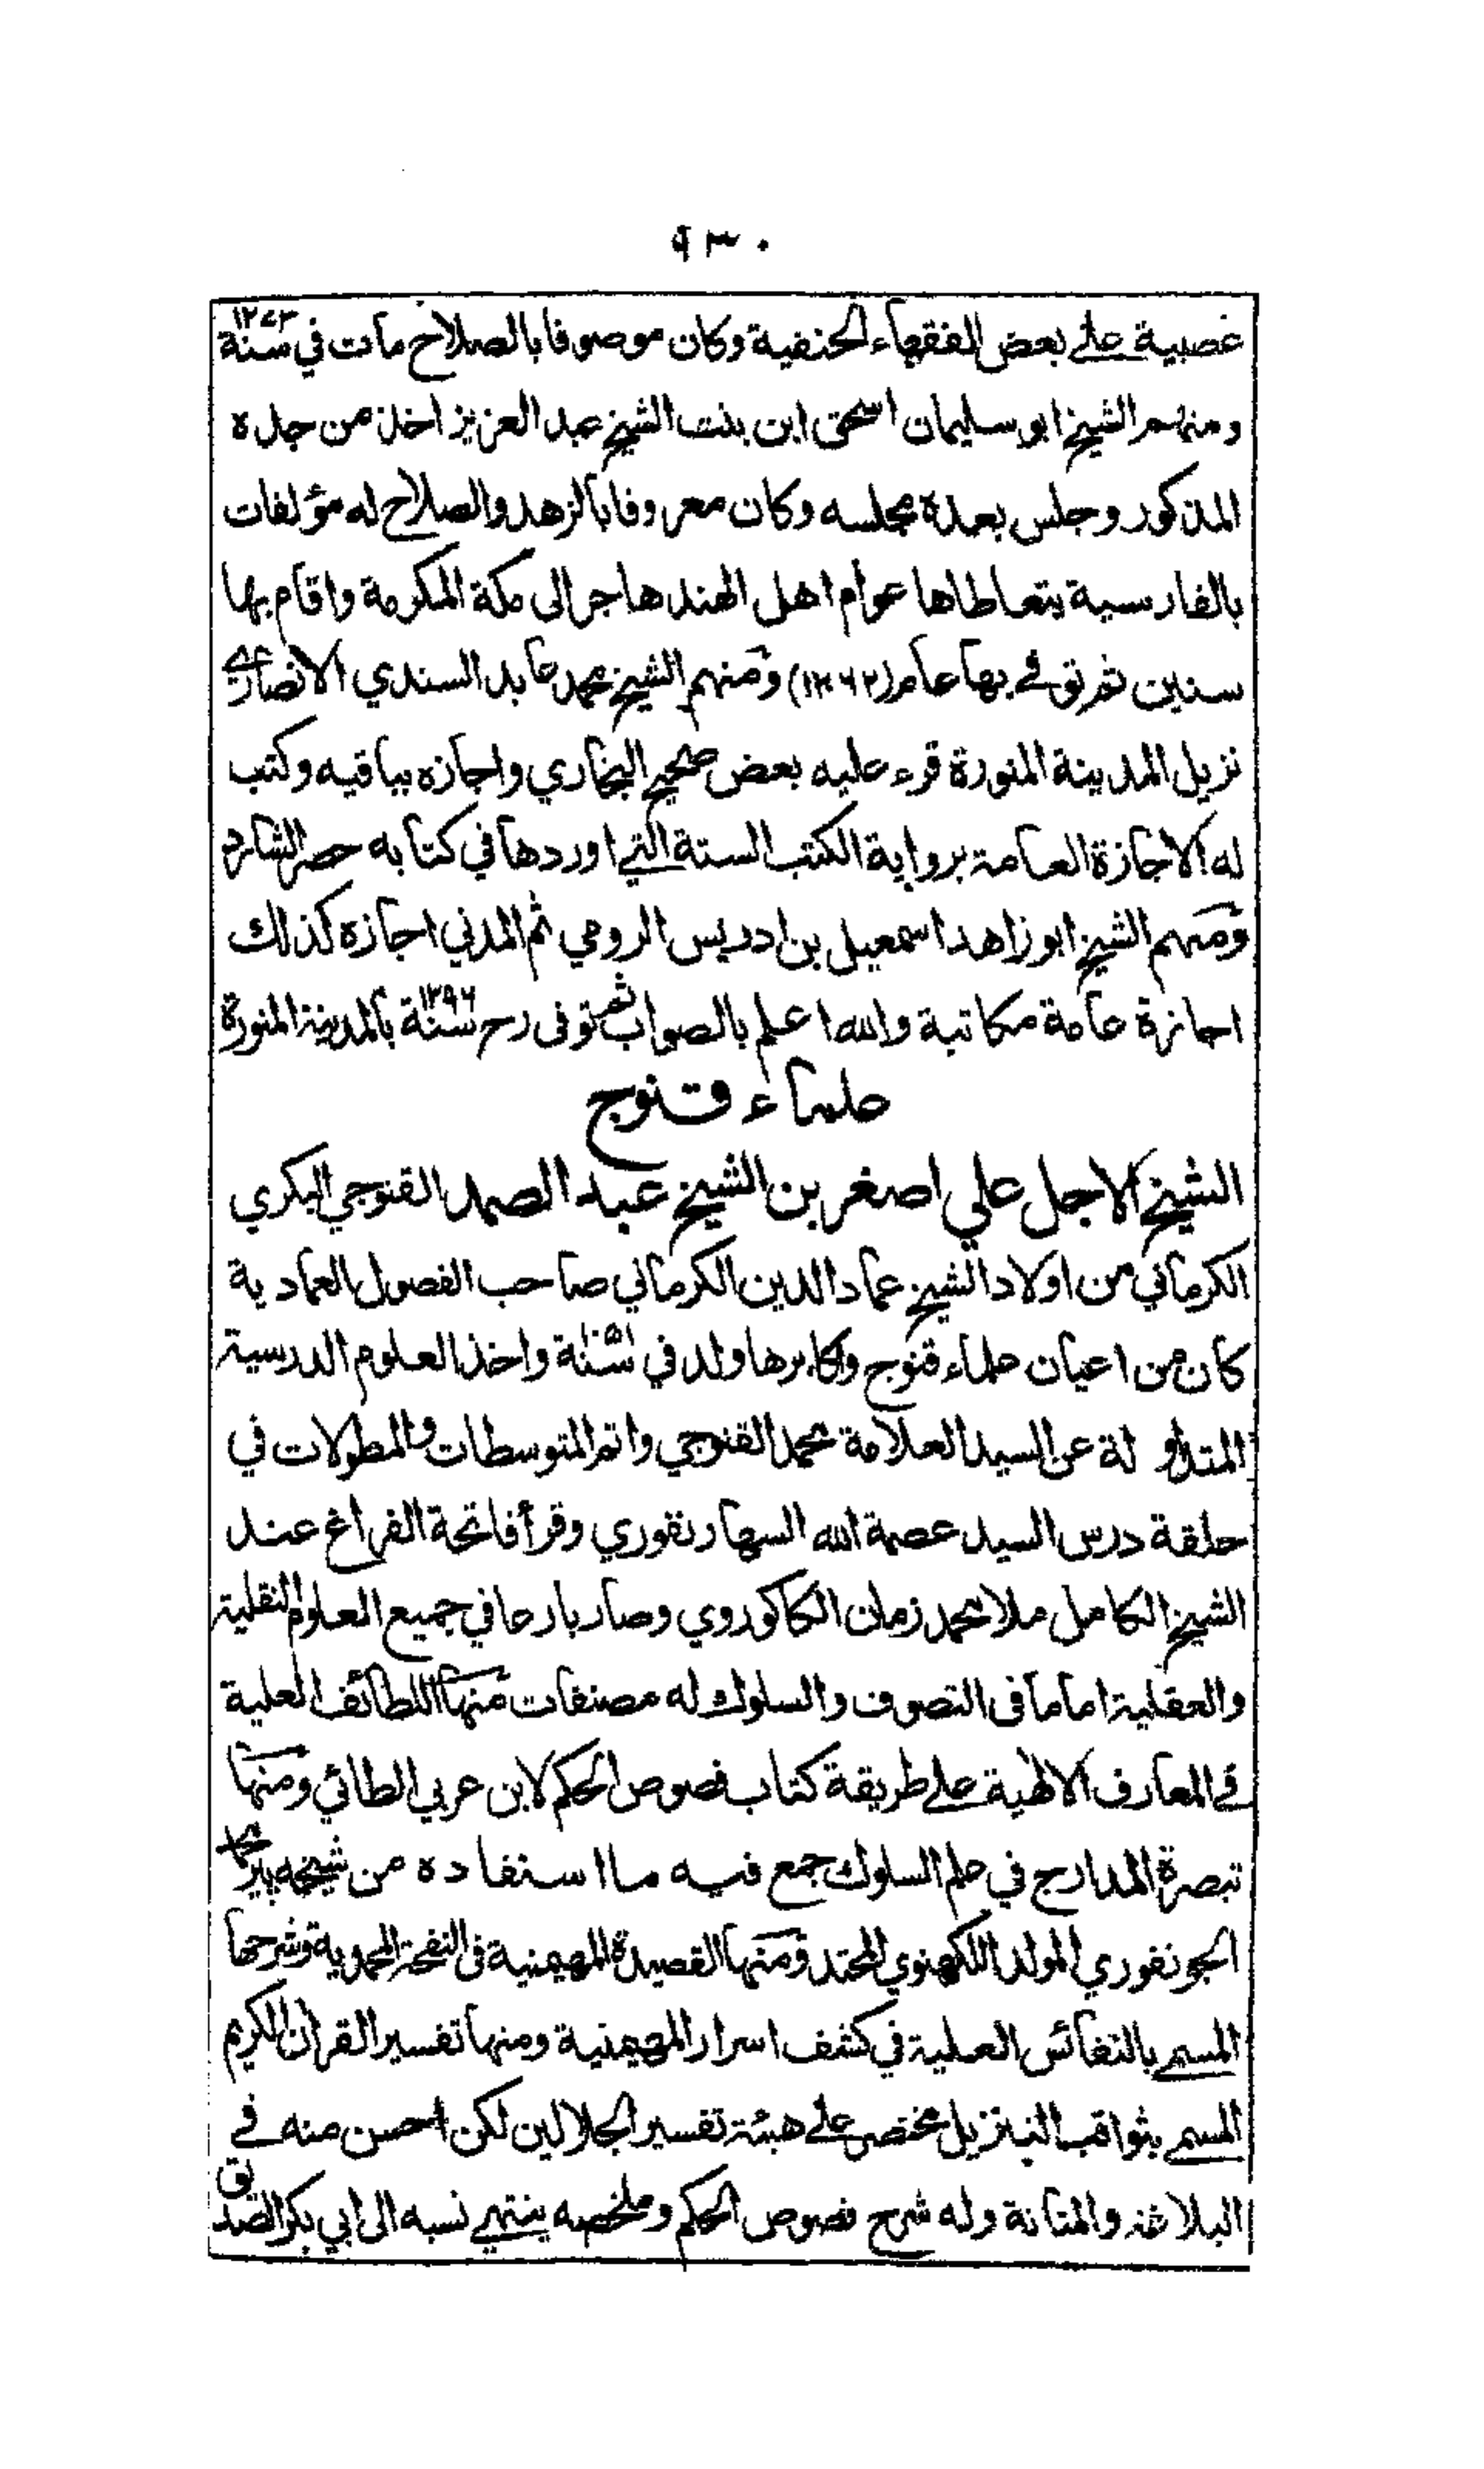 ٩٣٠
عصبية على بعض الفقهاء الحنفية وكان موصوفا بالصلاح مات في سنة ١٢٧٣
ومنهم الشيخ ابو سليمان اسحق ابن بنت الشيخ عبد العزيز اخذ من جده
المذكور وجلس بعده مجلسه وكان معروفا بالزهد والصلاح له مؤلفات
بالفارسية يتعاطاها عوام اهل الهند هاجر الى مكة المكرمة واقام بها
سنين ثم توفي بها عام (١٢٦٢) ومنهم الشيخ محمد عابد السندي الانصاري
نزيل المدينة المنورة قرء عليه بعض صحيح البخاري واجازه بباقيه وكتب
له الاجازة العامة برواية الكتب الستة التي اوردها في كتابه حصر الشارد
ومنهم الشيخ ابو زاهد اسمعيل بن ادريس الرومي ثم المدني اجازه كذلك
اجازة عامة مكاتبة والله اعلم بالصواب ثم توفى رح سنة ١٢٩٦ بالمدينة المنورة
علماء قنوج
الشيخ الاجل علي اصغر بن الشيخ عبد الصمد القنوجي البكري
الكرماني من اولاد الشيخ عماد الدين الكرماني صاحب الفصول العمادية
كان من اعيان علماء قنوج واكابرها ولد في سنة ١٠٥١ واخذ العلوم الدرسية
المتداولة عن السيد العلامة محمد القنوجي واتم المتوسطات والمطولات في
حلقة درس السيد عصمة الله السهارنفوري وقرأ فاتحة الفراغ عند
الشيخ الكامل ملا محمد زمان الكاكوروي وصار بارعا في جميع العلوم النقلية
والعقلية اماما في التصوف والسلوك له مصنفات منها اللطائف العلية
في المعارف الالهية على طريقة كتاب فصوص الحكم لابن عربي الطائي ومنها
تبصرة المدارج في علم السلوك جمع فيه ما استفاده من شيخه پير محمد
الجونفوري المولد اللكهنوي المحتد ومنها القصيدة المهيمنية في النفحة المحمدية وشرحها
المسمى بالنفائس العلية في كشف اسرار المهيمنية ومنها تفسير القران الكريم
المسمى بثواقب التنزيل مختصر على هيئة تفسير الجلالين لكن احسن منه في
البلاغة والمتانة وله شرح فصوص الحكم وملخصه ينتهي نسبه الى ابي بكر الصديق